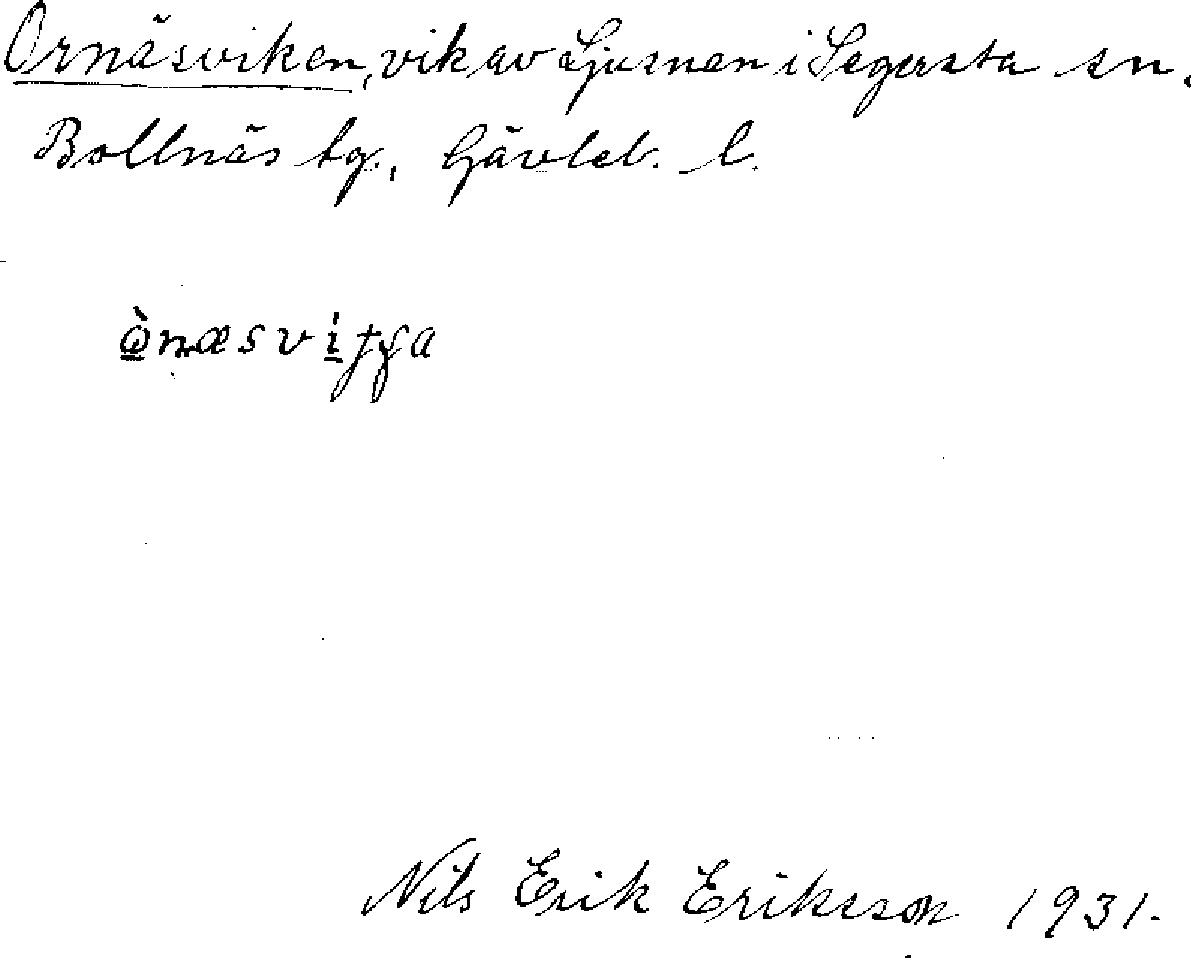 Ornäsviken, vik av Ljusnen i Segersta sn.
Bollnäs tg., Gävleb. l.
Nils Erik Eriksson 1931.